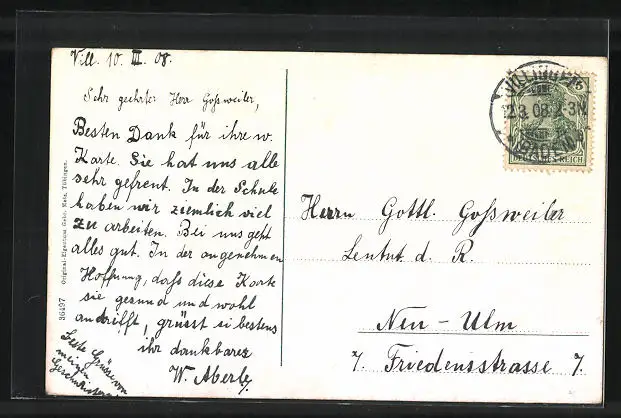 Vill. 10. III. 08.
Sehr geehrter Herr Goßweiler,
Besten Dank für ihre w.
Karte. Sie hat uns alle
sehr gefreut. In der Schule
haben wir ziemlich viel
zu arbeiten. Bei uns geht
alles gut. In der angenehmen
Hoffnung, dass diese Karte
sie gesund und wohl
andrifft, grüsst sie bestens
ihr dankbarer
W. Aberle
Beste Grüsse von
meinen
Geschwistern
36497 Original-Eigentum Gebr. Metz, Tübingen.
VILLINGEN
12.3.08.
(BADEN)
5
DEUTSCHES REICH
Herrn Gottl. Goßweiler
Leutnt. d. R.
Neu-Ulm
7. Friedensstrasse 7.